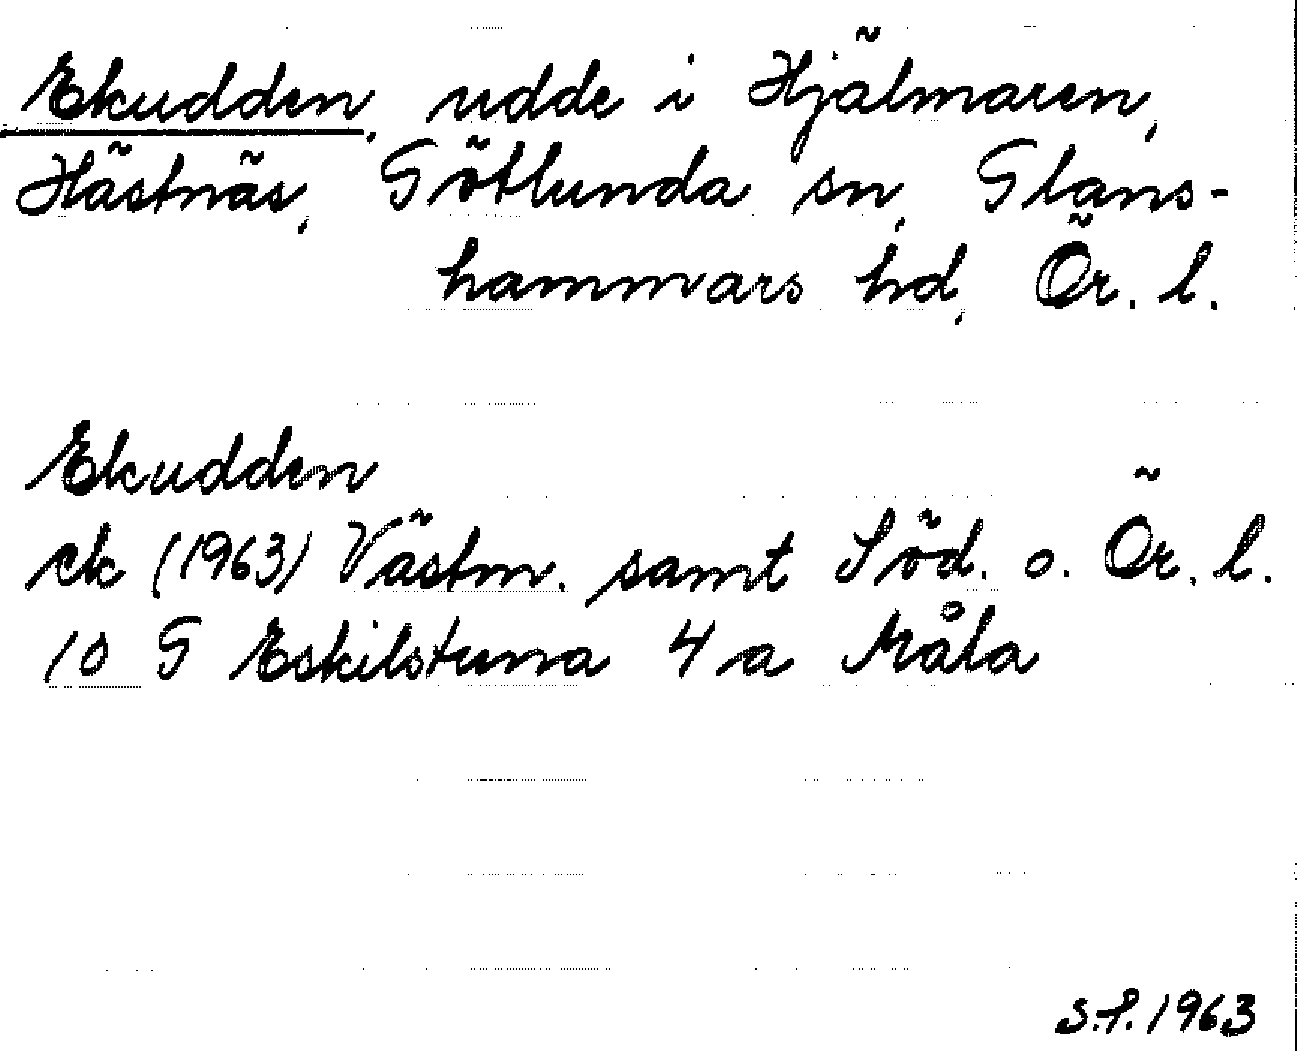 Ekudden, udde i Hjälmaren,
Hästnäs, Götlunda sn, Glans-
hammars hd, Ör. l.
Ekudden
ek (1963) Västm. samt Söd. o. Ör. l.
10 G Eskilstuna 4 a Måla
S.P. 1963